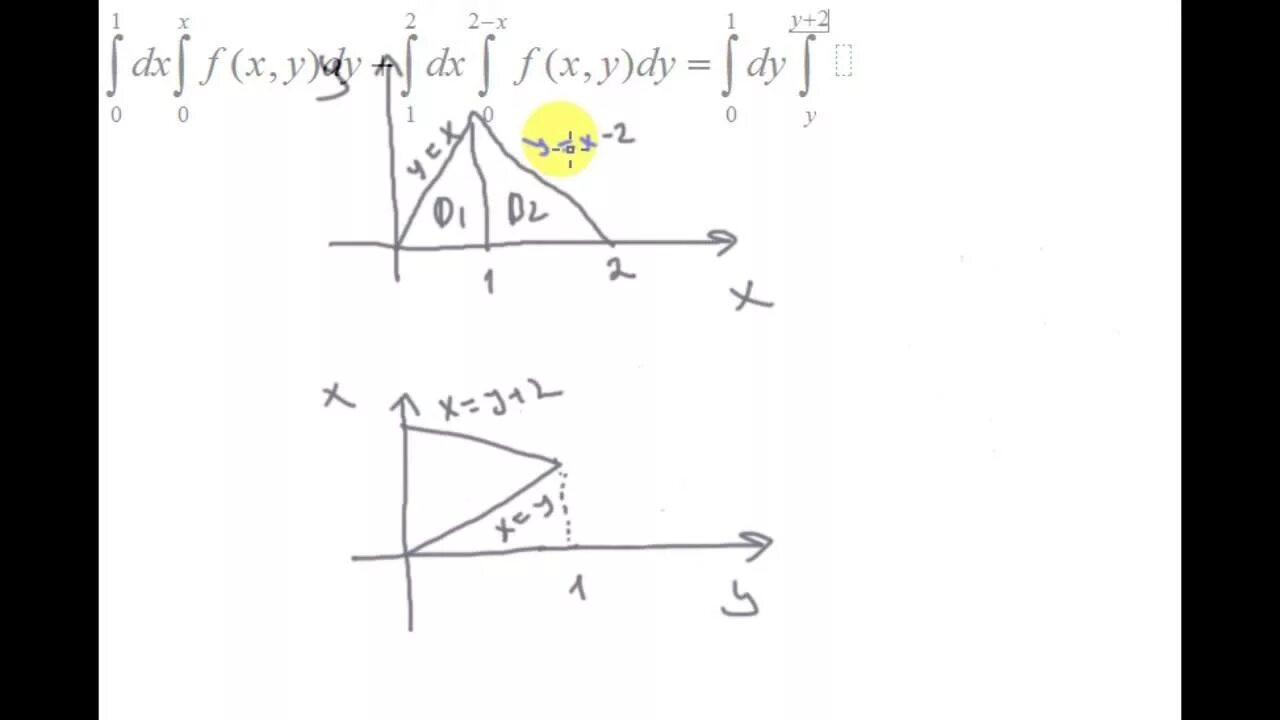 ∫₀¹ dx ∫₀ˣ f(x, y)dy + ∫₁² dx ∫₀²⁻ˣ f(x, y)dy = ∫₀¹ dy ∫ᵧʸ⁺²
y
y = x
y = x - 2
D1
D2
1
2
x
x
x = y + 2
x = y
1
y